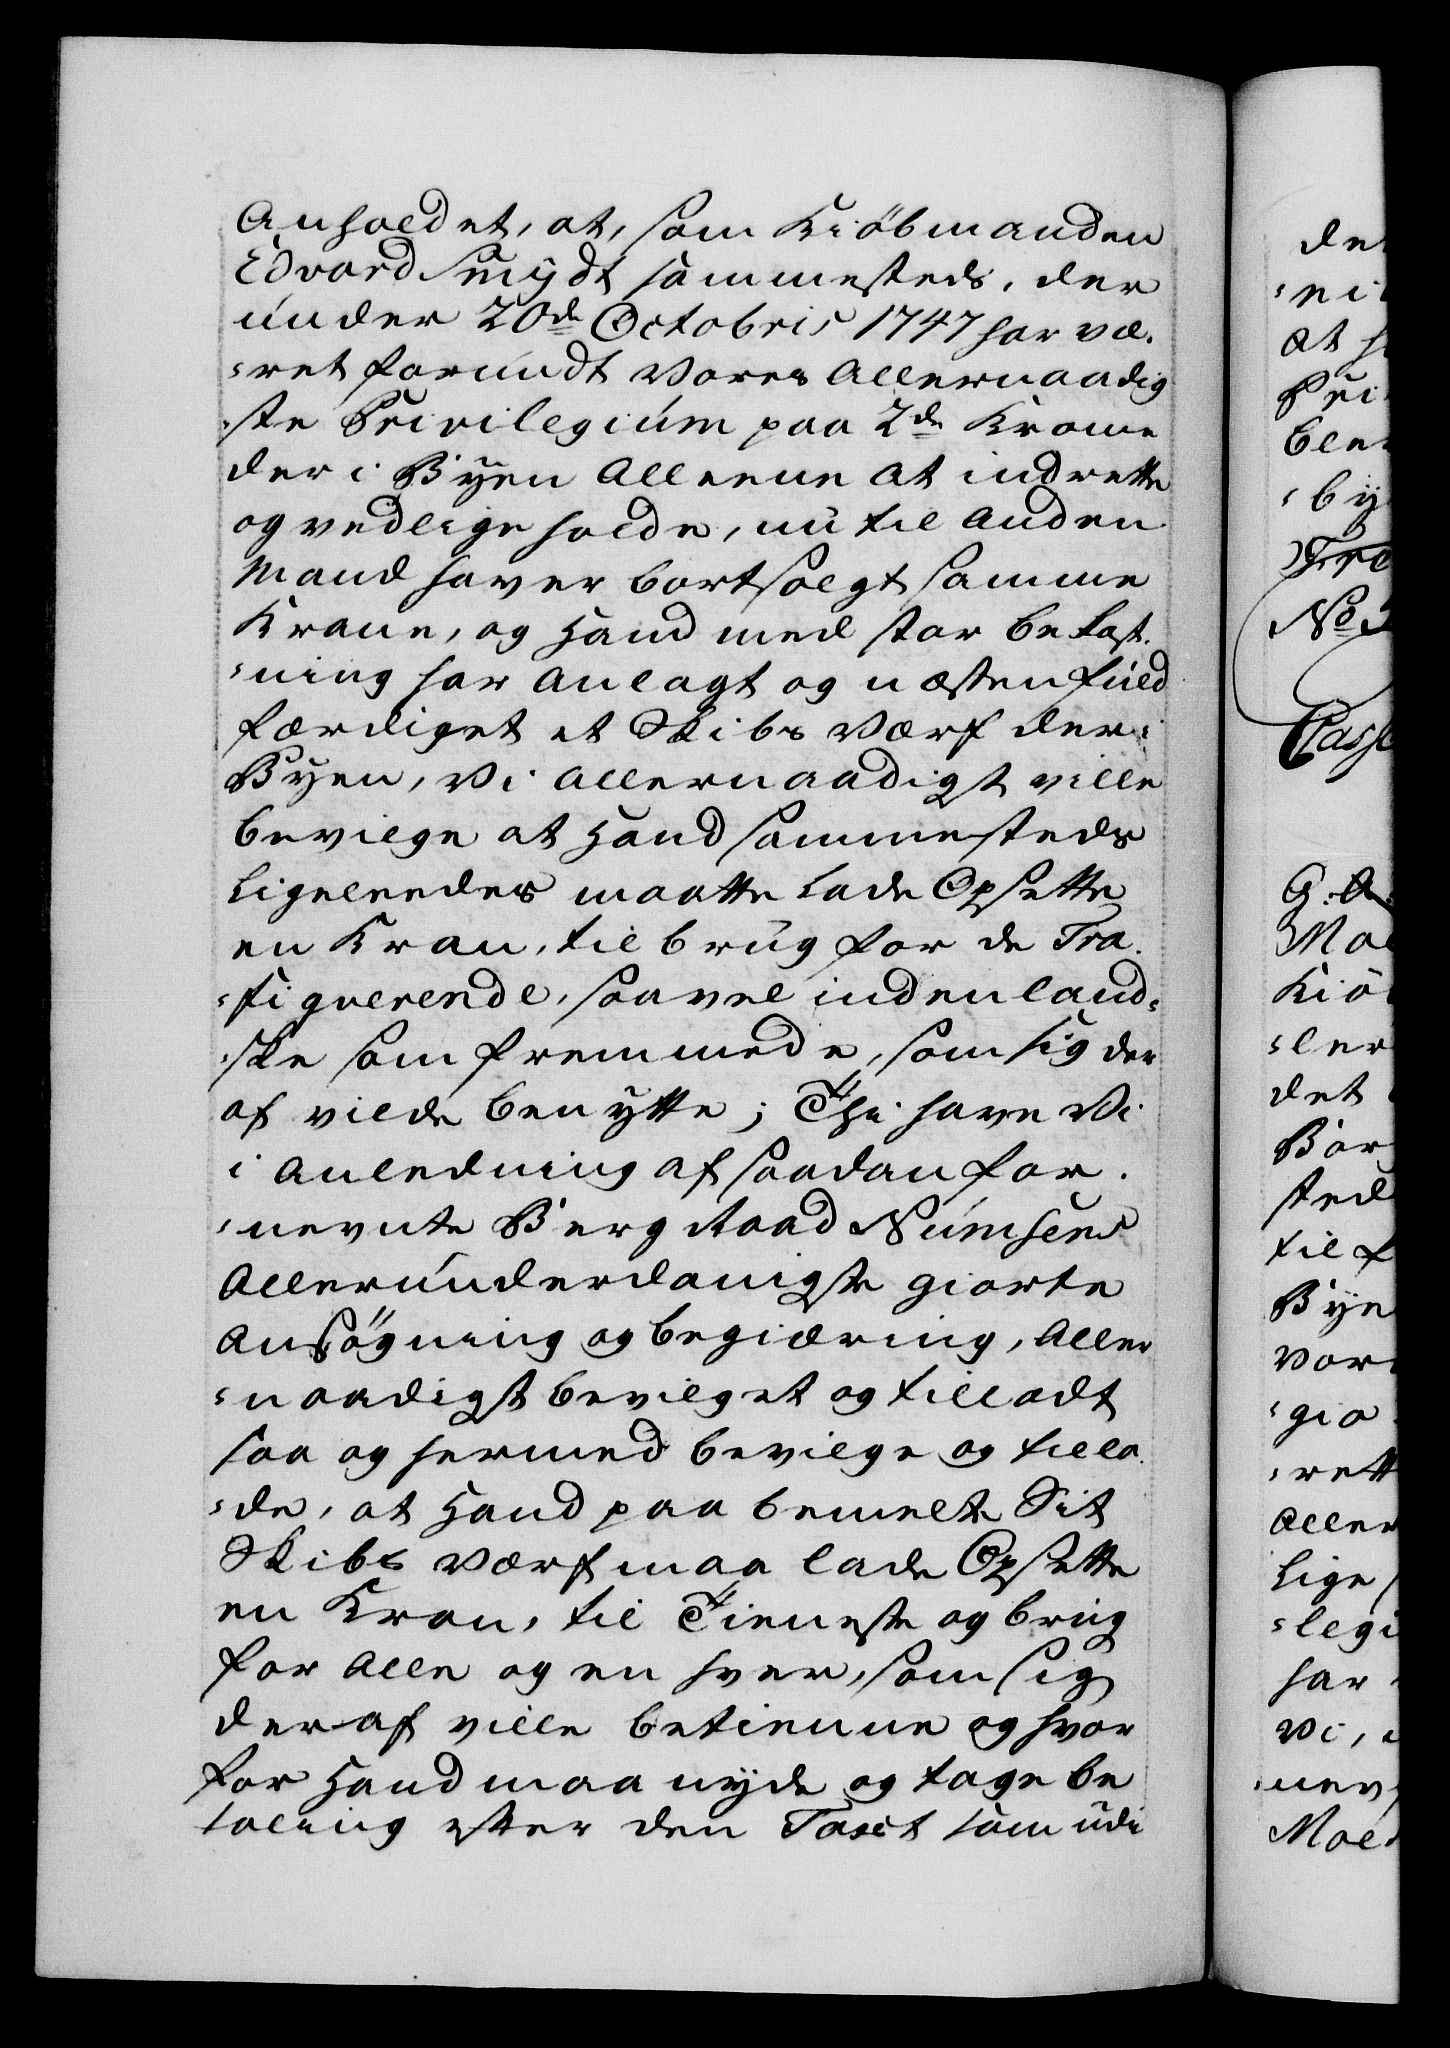 Anholdet, at, som Kiöbmanden
Edvard Smijdt sammesteds, der
under 20de Octobris 1747 har væ-
=ret forundt Vores Allernaadig
=ste Privilegium paa 2de Krane
der i Byen Alleene at indrette
og vedlige holde, nu til Anden
Mand haver bortsolgt samme
Krane, og Hand med stor bekost-
=ning har Anlagt og næsten fuld
færdiget et Skibs Værf der i
Byen, Vi Allernaadigst ville
bevilge at Hand sammesteds
Ligeleedes maatte lade Opsette
en Kran, til brug for de Tra-
=fiqverende, saavel indenland=
=ske som fremmede, som sig der
af vilde benytte; Thi have Vi
i Anledning af saadan for-
=nevnte Berg Raad Numsens
Allerunderdanigste giorte
Ansögning og begiæring, Aller
=naadigst bevilget og tilladt
saa og hermed bevilge og tilla-
=de, at Hand paa bemelte Sit
Skibs Værf maa lade Opsette
en Kran, til Tieneste og brug
for Alle og en hver, som sig
deraf ville betienne og hvor
for Hand maa nyde og tage be
taling efter den Taxt som udi
det
=ni
at
Pri
ble
=by
No
G: A:
Mol
Kiö
=ler
det
Bor
sted
til f
Bye
Vor
=gio
=rett
Aller
Lige
=legi
har
Vi,
nev
Mol